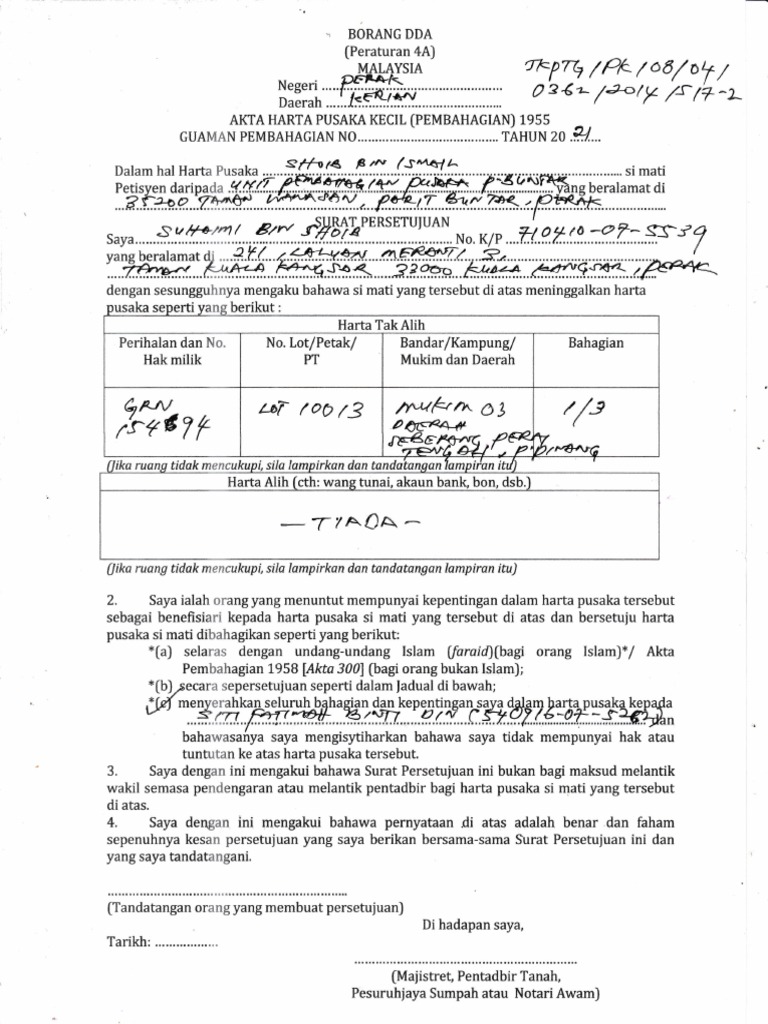 BORANG DDA
(Peraturan 4A)
MALAYSIA
Negeri ... PERAK ...
Daerah ... KERIAN ...
JKPTG/PK/08/04/
0362/2014/517-2
AKTA HARTA PUSAKA KECIL (PEMBAHAGIAN) 1955
GUAMAN PEMBAHAGIAN NO.............................. TAHUN 20 21
Dalam hal Harta Pusaka SHOIB BIN ISMAIL si mati
Petisyen daripada UNIT PEMBAHAGIAN PUSAKA P-BUNTAR yang beralamat di
35200 TAMAN WAWASAN, PARIT BUNTAR, PERAK
SURAT PERSETUJUAN
Saya SUHAIMI BIN SHOIB No. K/P 710410-07-5539
yang beralamat di 241, LALUAN MERANTI 3,
TAMAN KUALA KANGSAR 33000 KUALA KANGSAR, PERAK
dengan sesungguhnya mengaku bahawa si mati yang tersebut di atas meninggalkan harta
pusaka seperti yang berikut :
Harta Tak Alih
Perihalan dan No. Hak milik
No. Lot/Petak/ PT
Bandar/Kampung/ Mukim dan Daerah
Bahagian
GRN
LOT 10013
MUKIM 03
1/3
DAERAH
SEBERANG PERAI
TENGAH, P.PINANG
(Jika ruang tidak mencukupi, sila lampirkan dan tandatangan lampiran itu)
Harta Alih (cth: wang tunai, akaun bank, bon, dsb.)
— TIADA —
(Jika ruang tidak mencukupi, sila lampirkan dan tandatangan lampiran itu)
2. Saya ialah orang yang menuntut mempunyai kepentingan dalam harta pusaka tersebut
sebagai benefisiari kepada harta pusaka si mati yang tersebut di atas dan bersetuju harta
pusaka si mati dibahagikan seperti yang berikut:
*(a) selaras dengan undang-undang Islam (faraid)(bagi orang Islam)*/ Akta
Pembahagian 1958 [Akta 300] (bagi orang bukan Islam);
*(b) secara sepersetujuan seperti dalam Jadual di bawah;
*(c) menyerahkan seluruh bahagian dan kepentingan saya dalam harta pusaka kepada
SITI FATIMAH BINTI DIN (540916-07-5262) dan
bahawasanya saya mengisytiharkan bahawa saya tidak mempunyai hak atau
tuntutan ke atas harta pusaka tersebut.
3. Saya dengan ini mengakui bahawa Surat Persetujuan ini bukan bagi maksud melantik
wakil semasa pendengaran atau melantik pentadbir bagi harta pusaka si mati yang tersebut
di atas.
4. Saya dengan ini mengakui bahawa pernyataan di atas adalah benar dan faham
sepenuhnya kesan persetujuan yang saya berikan bersama-sama Surat Persetujuan ini dan
yang saya tandatangani.
(Tandatangan orang yang membuat persetujuan)
Di hadapan saya,
Tarikh: ..................
(Majistret, Pentadbir Tanah,
Pesuruhjaya Sumpah atau Notari Awam)